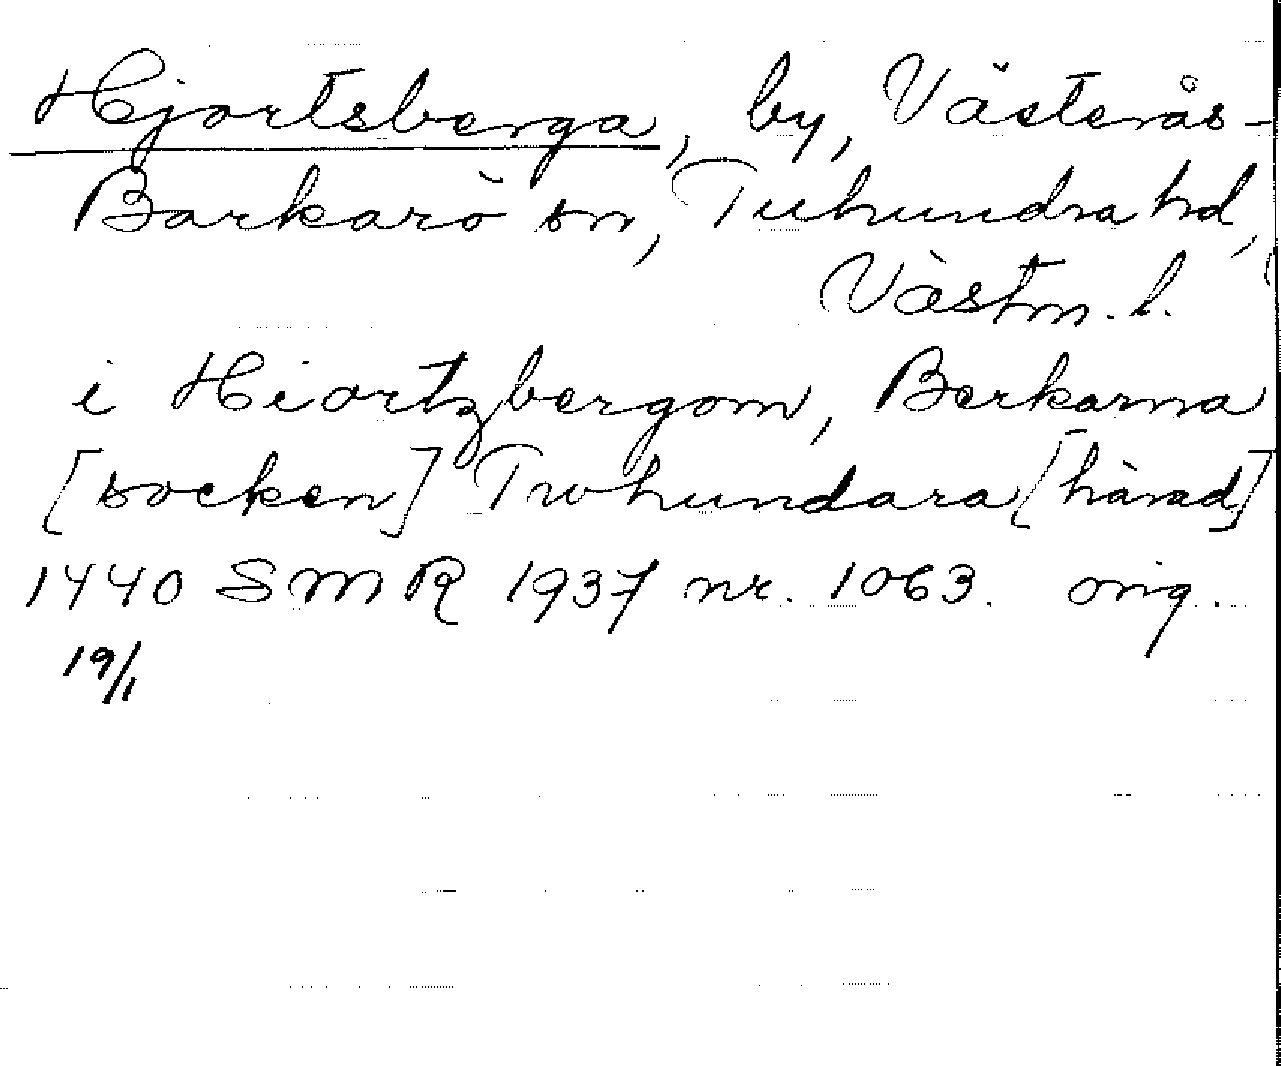 Hjortsberga, by, Västerås-
Barkarö sn, Tuhundra hd,
Västm. l.
i Hiortzbergom, Berkarna
[socken] Twhundara [härad]
1440 SMR 1937 nr. 1063. orig.
19/1